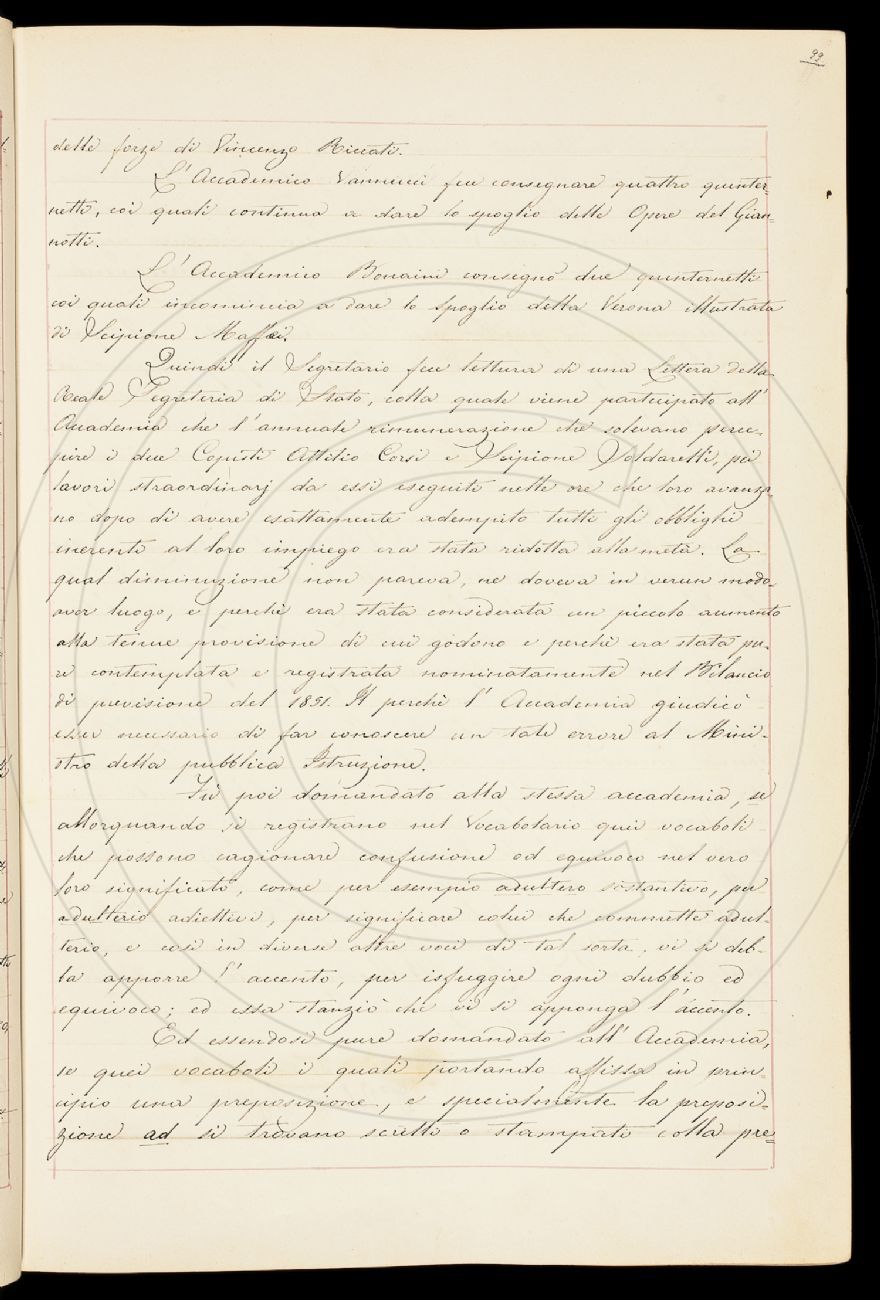 99
delle forze di Vincenzo Riccati.
L'Accademico Vannucci fece consegnare quattro quinter-
netti, coi quali continua a dare lo spoglio delle Opere del Gian-
notti.
L'Accademico Bonaini consegnò due quinternetti
coi quali incomincia a dare lo spoglio della Verona illustrata
di Scipione Maffei.
Quindi il Segretario fece lettura di una Lettera della
Reale Segreteria di Stato, colla quale viene participato all'
Accademia che l'annuale rimunerazione che solevano perce-
pire i due Copisti Attilio Corsi e Scipione Soldarelli, pei
lavori straordinarj da essi eseguiti nelle ore che loro avanza-
no dopo di avere esattamente adempito tutti gli obblighi
inerenti al loro impiego era stata ridotta alla metà. La
qual diminuzione non pareva, ne doveva in verun modo
aver luogo, e perchè era stata considerata un piccolo aumento
alla tenue provisione di cui godono e perchè era stata pu-
re contemplata e registrata nominatamente nel Bilancio
di previsione del 1851. Il perchè l'Accademia giudicò
esser necessario di far conoscere un tale errore al Mini-
stro della pubblica Istruzione.
Fù poi domandato alla stessa accademia, se
allorquando si registrano nel Vocabolario quei vocaboli
che possono cagionare confusione od equivoco nel vero
loro significato, come per esempio adultero sostantivo, per
adulterio adiettivi, per significare colui che commette adul-
terio, e così in diverse altre voci di tal sorta, vi si deb-
ba apporre l'accento, per isfuggire ogni dubbio ed
equivoco; ed essa stanziò che vi si apponga l'accento.
Ed essendosi pure domandato all'Accademia,
se quei vocaboli i quali portando affissa in prin-
cipio una preposizione, e specialmente la preposi-
zione ad si trovano scritti o stampati colla pre-